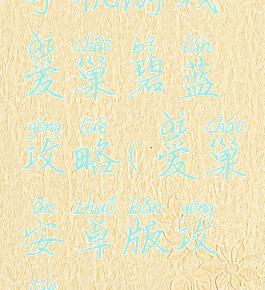 手机游戏
ài cháo bì lán
爱巢碧蓝
gōng lüè ài cháo
攻略(爱巢
ān zhuó bǎn gōng
安卓版攻
lüè